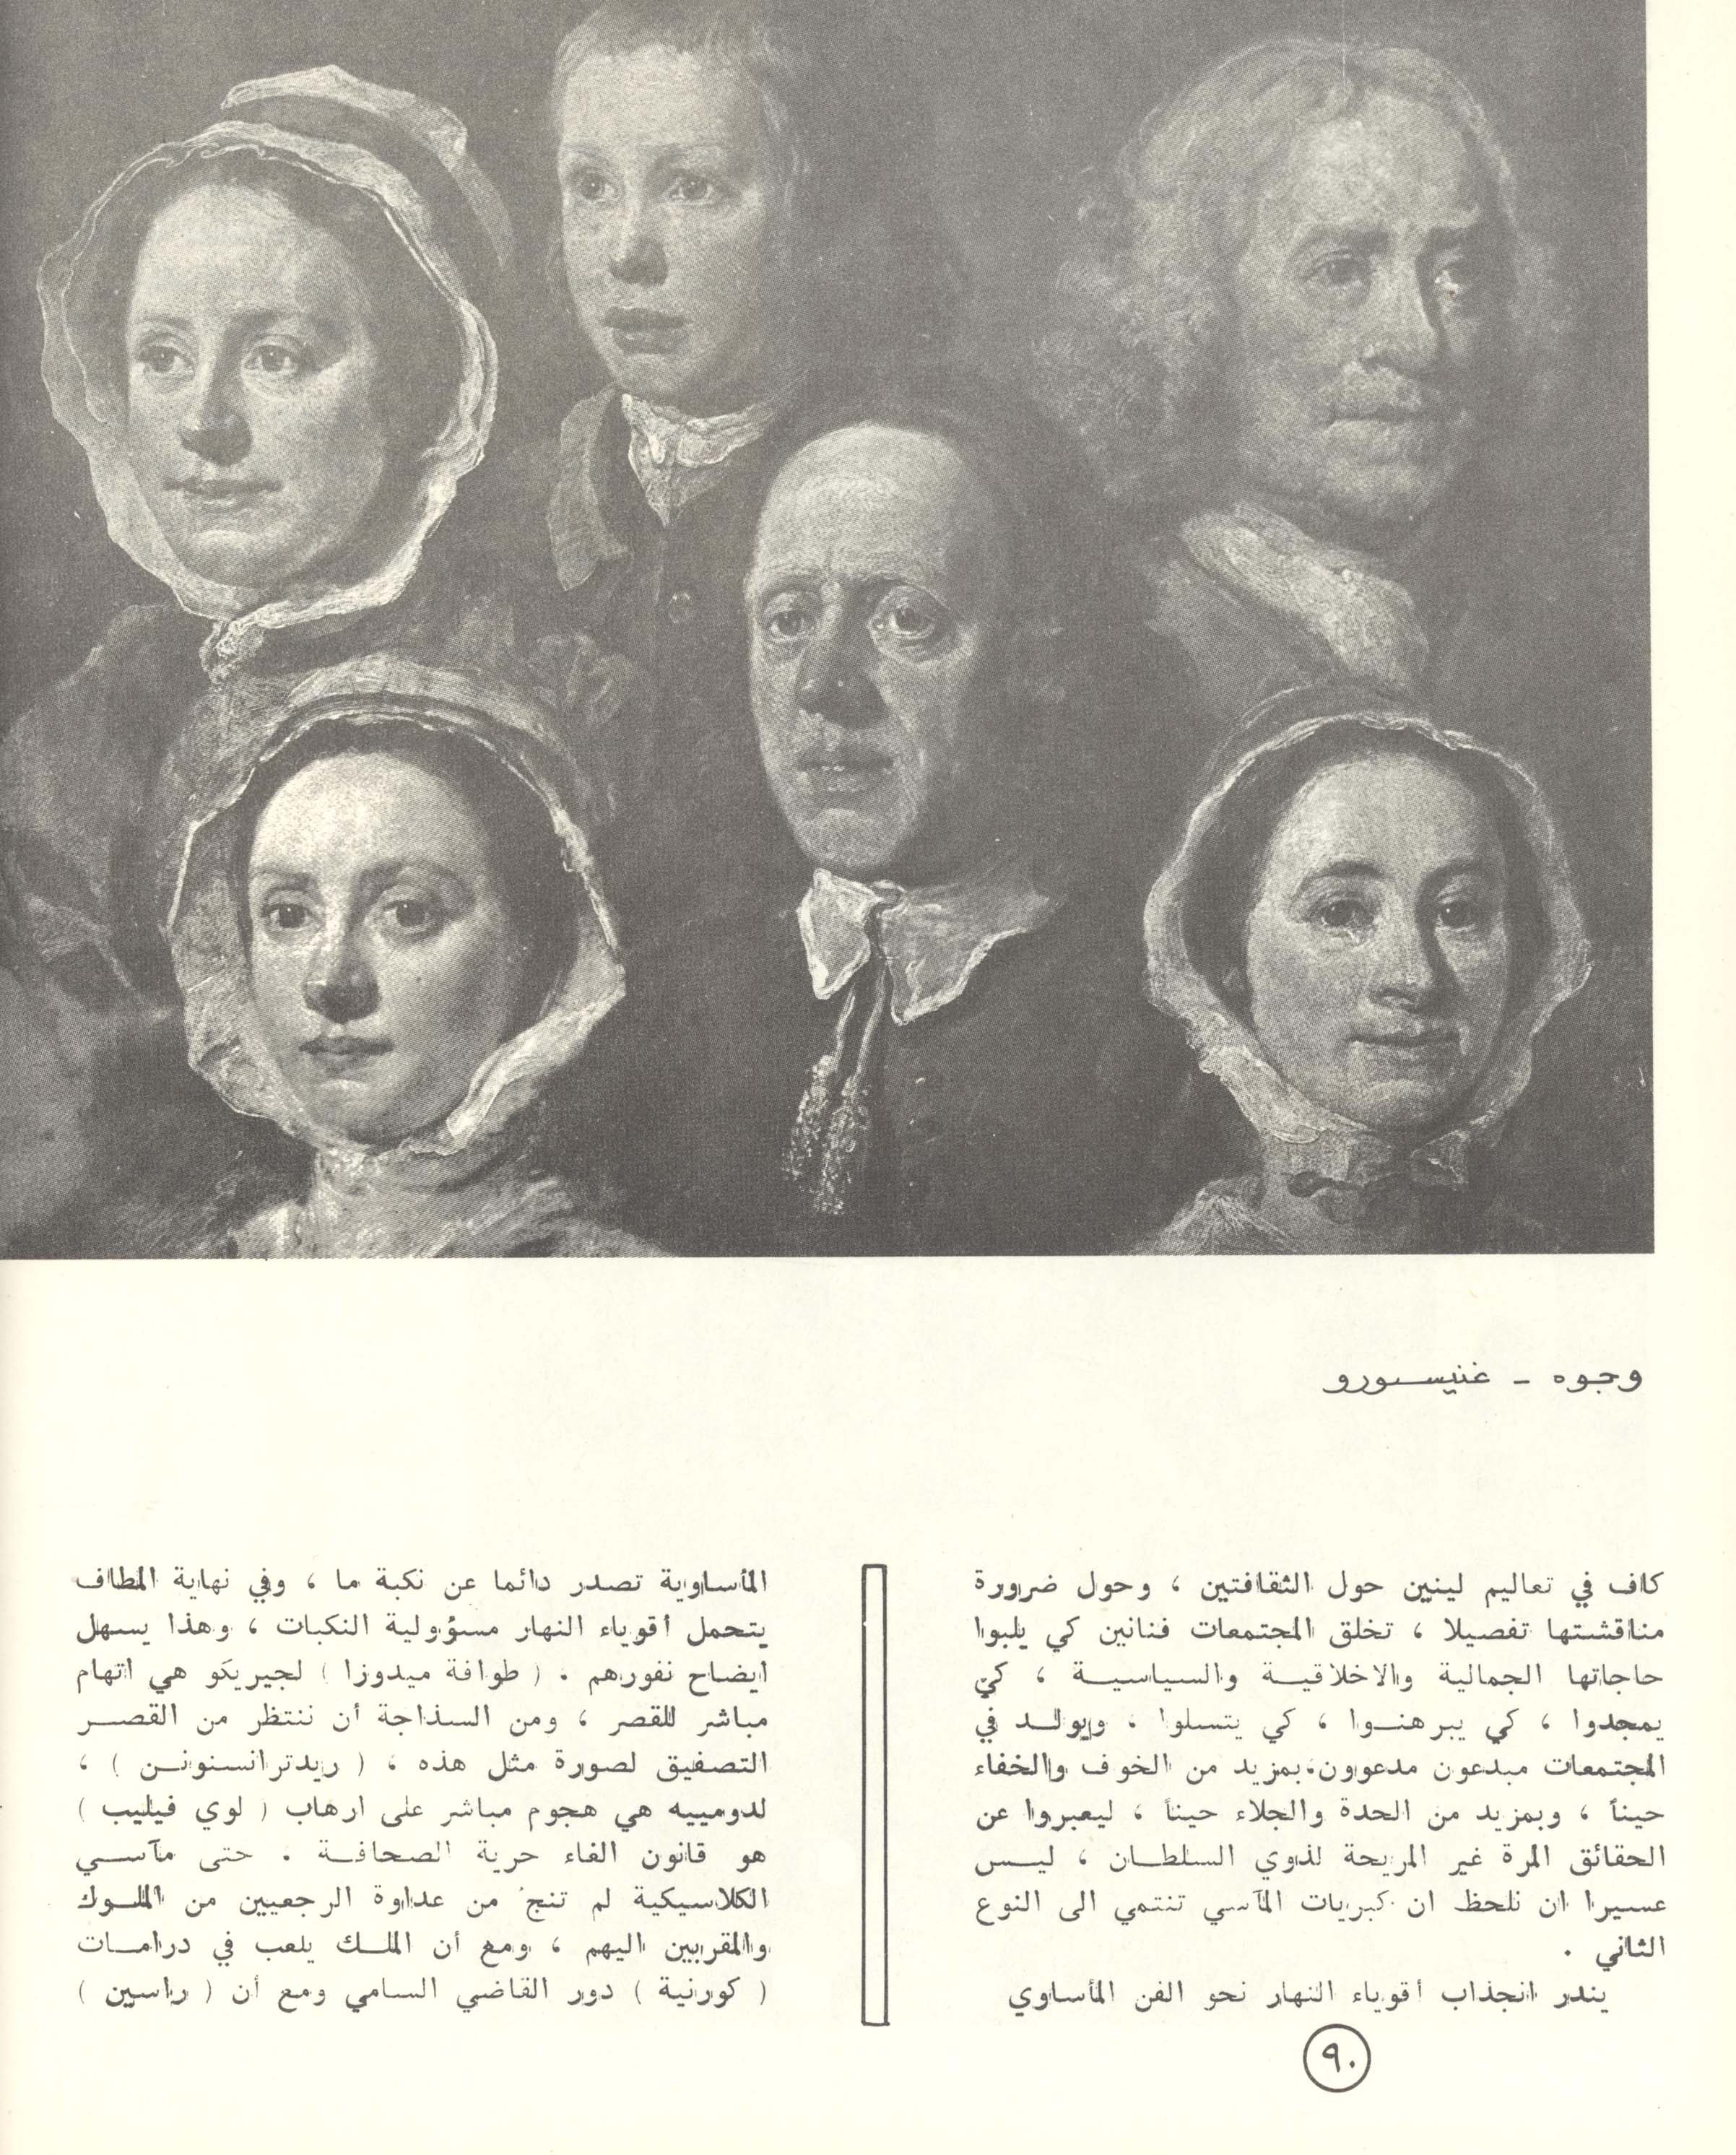 وجوه - غنيسورو
كاف في تعاليم لينين حول الثقافتين ، وحول ضرورة
مناقشتها تفصيلا ، تخلق المجتمعات فنانين كي يلبوا
حاجاتها الجمالية والاخلاقية والسياسية ، كي
يمجدوا ، كي يبرهنوا ، كي يتسلوا ، ويولد في
المجتمعات مبدعون مدعوون،بمزيد من الخوف والخفاء
حيناً ، وبمزيد من الحدة والجلاء حيناً ، ليعبروا عن
الحقائق المرة غير المريحة لذوي السلطان ، ليس
عسيرا ان نلحظ ان كبريات المآسي تنتمي الى النوع
الثاني .
يندر انجذاب أقوياء النهار نحو الفن المأساوي
المأساوية تصدر دائما عن نكبة ما ، وفي نهاية المطاف
يتحمل أقوياء النهار مسؤولية النكبات ، وهذا يسهل
ايضاح نفورهم . ( طوافة ميدوزا ) لجيريكو هي اتهام
مباشر للقصر ، ومن السذاجة أن ننتظر من القصر
التصفيق لصورة مثل هذه ، ( ريدترانسنونن ) ،
لدومييه هي هجوم مباشر على ارهاب ( لوي فيليب )
هو قانون الغاء حرية الصحافة . حتى مآسي
الكلاسيكية لم تنج من عداوة الرجعيين من الملوك
والمقربين اليهم ، ومع أن الملك يلعب في درامات
( كورنية ) دور القاضي السامي ومع أن ( راسين )
٩٠